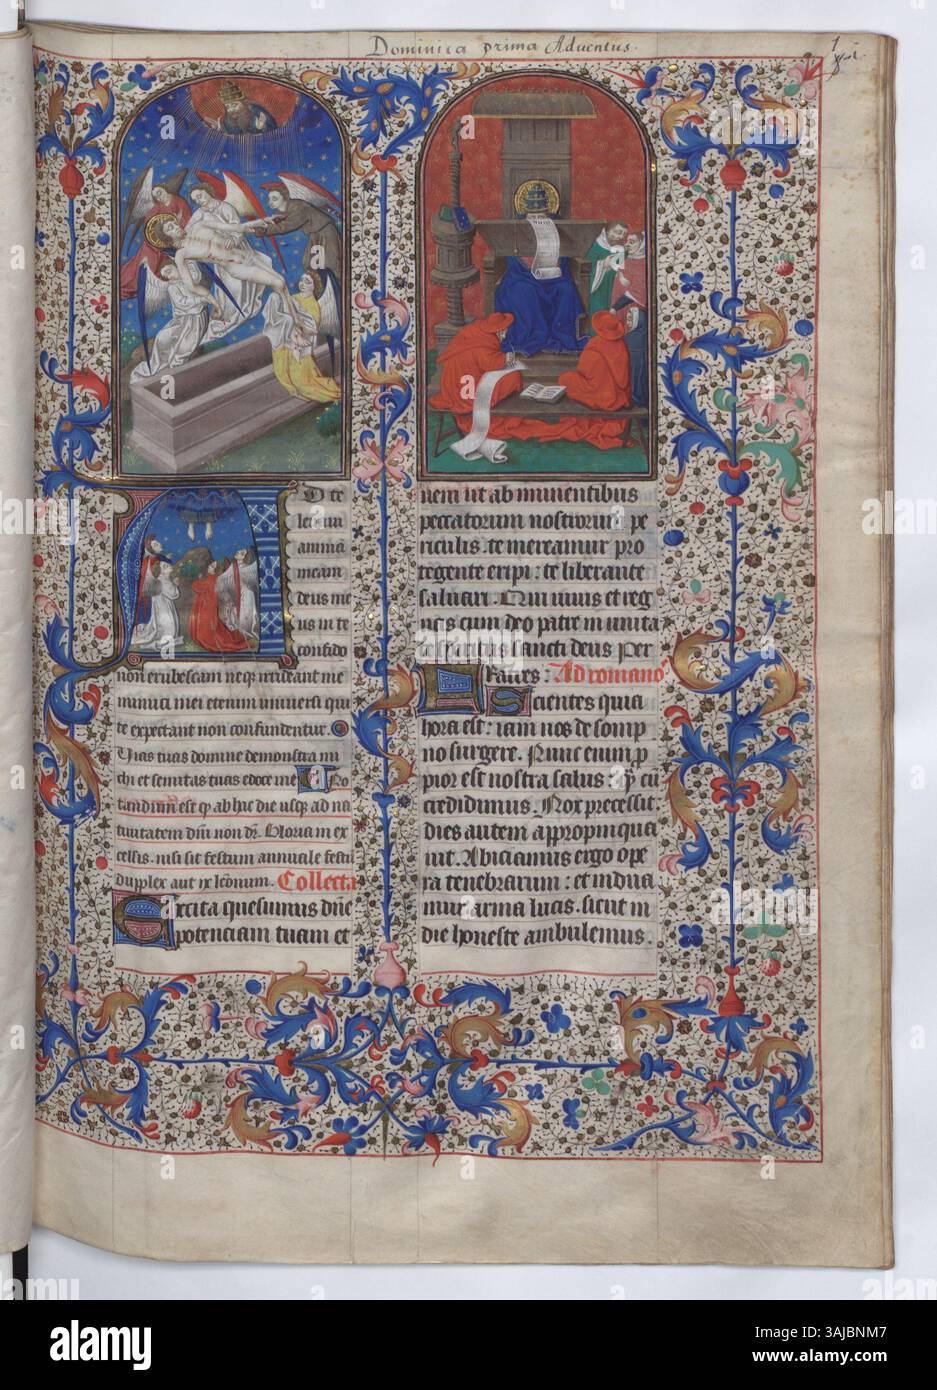 Dominica prima Aduentus.
1
D te
leuaui
anima
meam
deus me
us in te
confido
non erubescam neq; irrideant me
inimici mei etenim uniuersi qui
te expectant non confundentur.
Vias tuas domine demonstra mi
chi et semitas tuas edoce me
tandum est q ab hac die usq; ad na
tiuitatem dni non dr. Gloria in ex
celsis. nisi sit festum annuale festu
duplex aut ix lconum. Collecta
Excita quesumus dne
potenciam tuam et
ueni ut ab iminentibus
peccatorum nostrorum pe
riculis. te mereamur pro
tegente eripi: te liberante
saluari. Qui uiuis et reg
nas cum deo patre in unita
te spiritus sancti deus Per
Fratres: Ad romano
Scientes quia
hora est: iam nos de somp
no surgere. Nunc enim p
pior est nostra salus: q cu
credidimus. Nox precessit
dies autem appropinqua
uit. Abiciamus ergo ope
ra tenebrarum: et indua
mur arma lucis. sicut in
die honeste ambulemus.
alamy
Image ID: 3AJBNM7
www.alamy.com